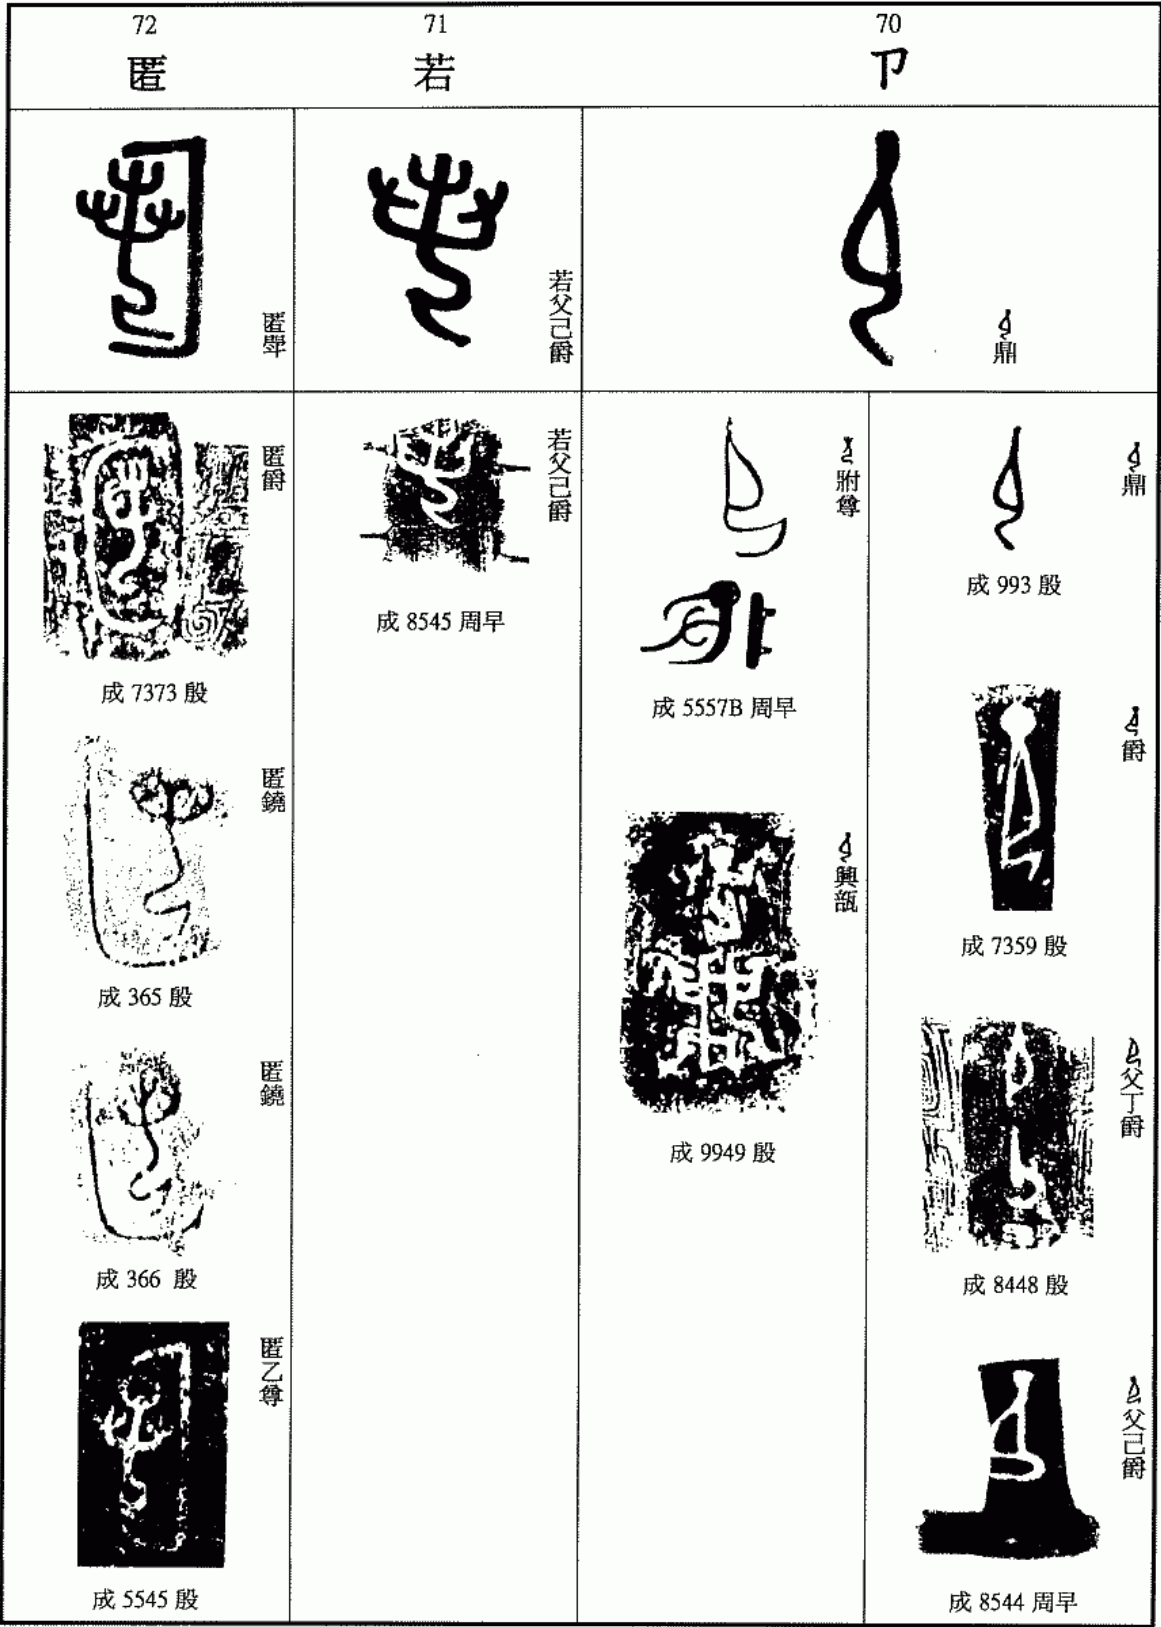 70
卩
鼎
鼎
成 993 殷
爵
成 7359 殷
父丁爵
成 8448 殷
父己爵
成 8544 周早
尊
成 5557B 周早
興瓿
成 9949 殷
71
若
若父己爵
若父己爵
成 8545 周早
72
匿
匿斝
匿爵
成 7373 殷
匿鐃
成 365 殷
匿鐃
成 366 殷
匿乙尊
成 5545 殷